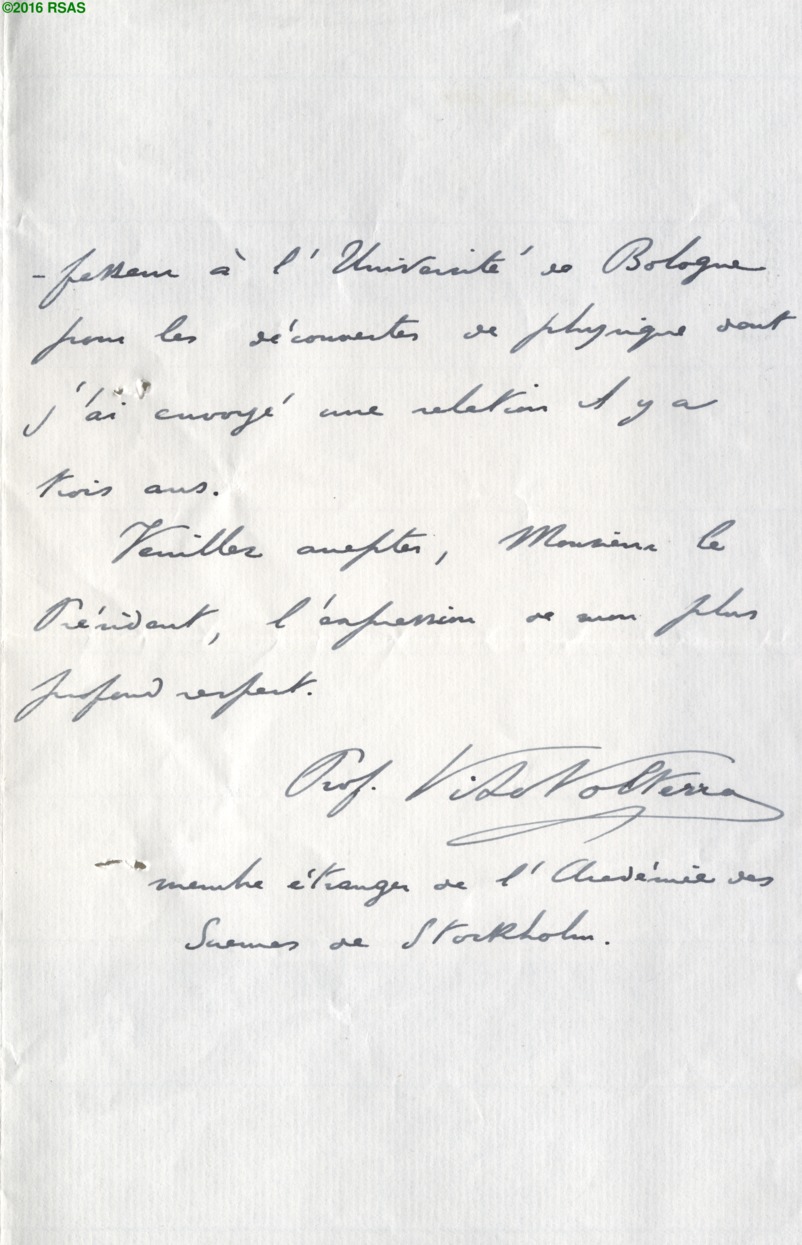 ©2016 RSAS
-fesseur à l'Université de Bologne
pour les découvertes de physique dont
j'ai envoyé une relation il y a
trois ans.
Veuillez accepter, Monsieur le
Président, l'expression de mon plus
profond respect.
Prof. Vito Volterra
membre étranger de l'Académie des
Sciences de Stockholm.